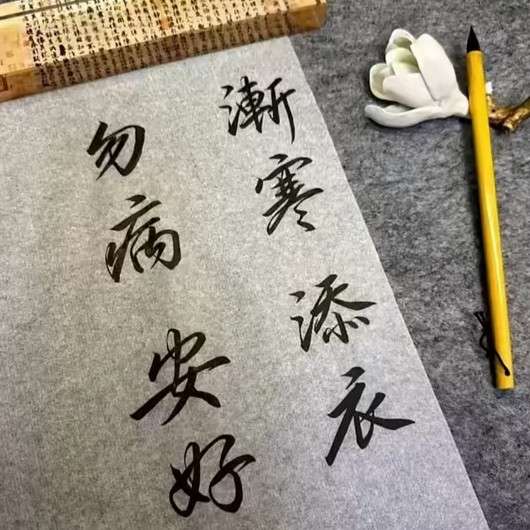 漸寒添衣
勿病安好